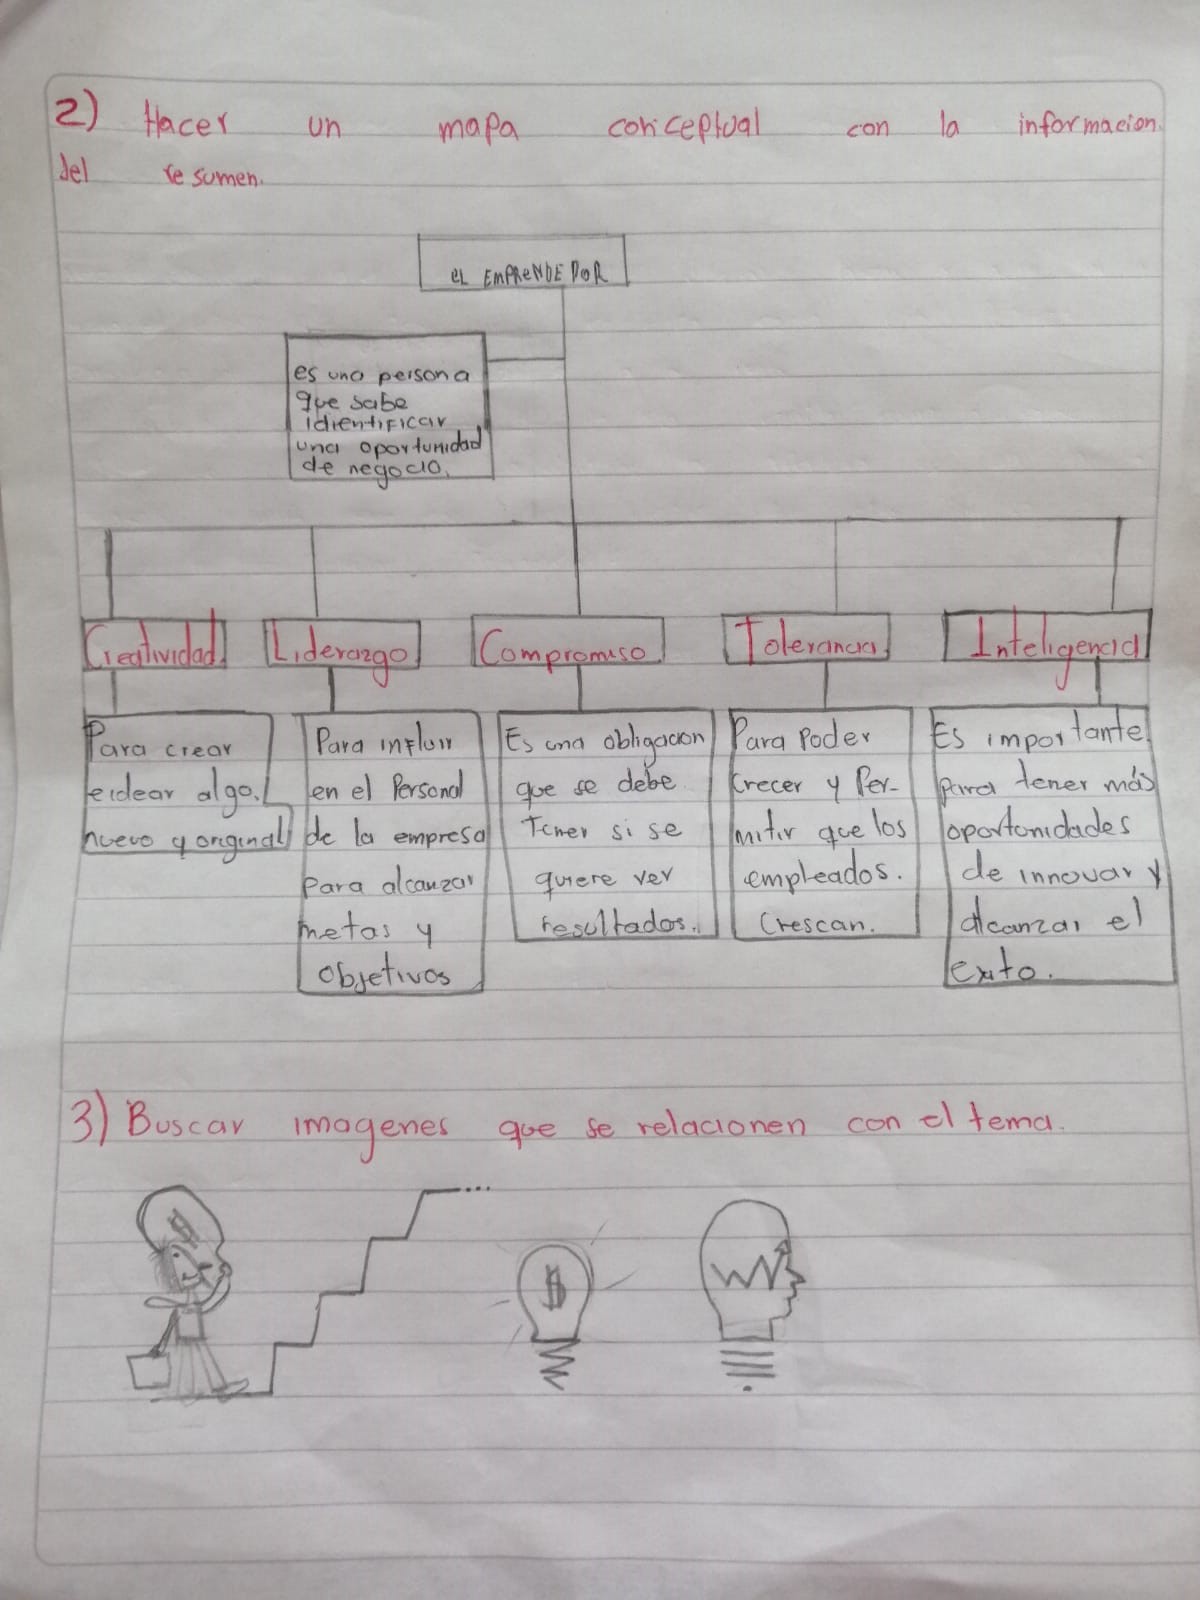 2) Hacer un mapa conceptual con la informacion.
del resumen.
EL EMPRENDEDOR
es una persona
que sabe
idientificar
una oportunidad
de negocio.
Creatividad
Liderazgo
Compromiso
Tolerancia
Inteligencia
Para crear
e idear algo.
nuevo y original
Para influir
en el Personal
de la empresa
para alcanzar
metas y
objetivos
Es una obligacion
que se debe
Tener si se
quiere ver
resultados.
Para Poder
crecer y Per-
mitir que los
empleados.
Crescan.
Es importante
para tener más
oportunidades
de innovar y
alcanzar el
exito.
3) Buscar imagenes que se relacionen con el tema.
$
$